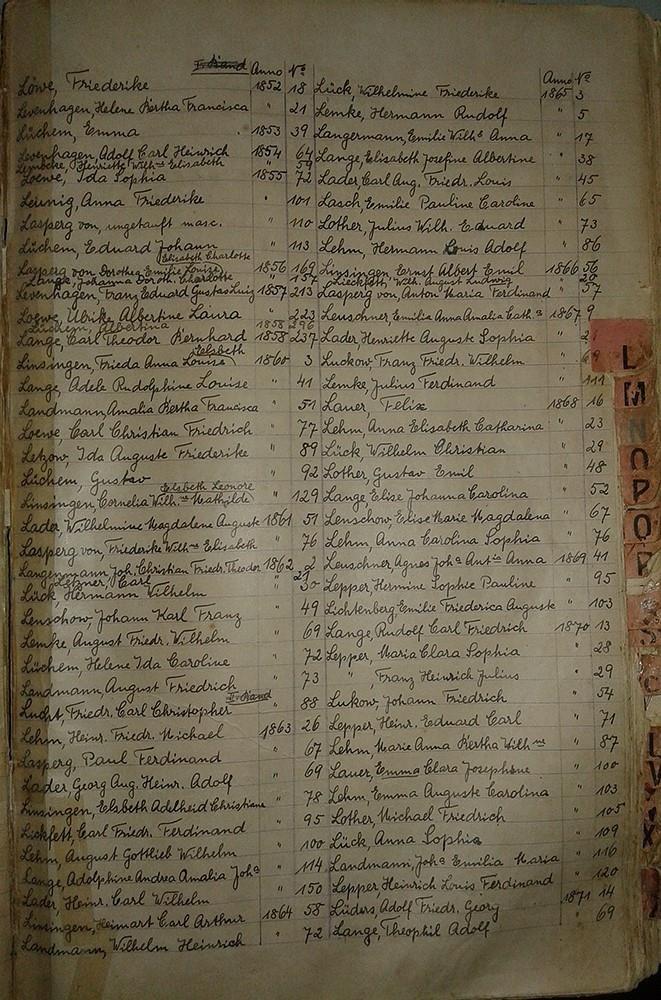 I. Band Anno No
Löwe, Friederike 1852 18
Levenhagen, Helene Bertha Francisca " 21
Lüchem, Emma " 1853 39
Levenhagen, Adolf Carl Heinrich 1854 64
Lembcke, Henriette Wilhne Elisabeth " 57
Loewe, Ida Sophia 1855 72
Leunig, Anna Friederike " 101
Lasperg von, ungetauft masc. " 110
Lüchem, Eduard Johann " 113
Elisabeth Charlotte
Lasperg von Dorothea Emilie Louise 1856 169
Lange, Johanna Doroth. Charlotte " 157
Levenhagen, Franz Eduard Gustav 1857 213
Loewe, Ulrike Albertine Laura " 223
Lüchem, Albertina 1858 296
Lange, Carl Theodor Bernhard 1858 237
Elsbeth
Linsingen, Frieda Anna Louise 1860 3
Lange, Adele Rudolphine Louise " 41
Landmann, Amalia Bertha Francisca " 51
Loewe, Carl Christian Friedrich " 77
Letzow, Ida Auguste Friederike " 89
Lüchem, Gustav " 92
Elsbeth Leonore
Linsingen, Cornelia Wilhne Mathilde " 129
Lader, Wilhelmine Magdalene Auguste 1861 51
Lasperg von, Friederike Wilhne Elisabeth " 76
Langenmann Joh. Christian Friedr. Theodor 1862 2
Carl
Lück Hermann Wilhelm " 30
Lenschow, Johann Karl Franz " 49
Lemke, August Friedr. Wilhelm " 69
Lüchem, Helene Ida Caroline " 72
Landmann, August Friedrich " 73
II. Band
Lucht, Friedr. Carl Christopher " 88
Lehm, Heinr. Friedr. Michael 1863 26
Lasperg, Paul Ferdinand " 67
Lader, Georg Aug. Heinr. Adolf " 69
Linsingen, Elsbeth Adelheid Christiane " 78
Lickfett, Carl Friedr. Ferdinand " 95
Lehm, August Gottlieb Wilhelm " 100
Lange, Adolphine Andrea Amalia Joha " 114
Lader, Heinr. Carl Wilhelm " 150
Linsingen, Heimart Carl Arthur 1864 58
Landmann, Wilhelm Heinrich " 72
Anno No
Lück, Wilhelmine Friederike 1865 3
Lemke, Hermann Rudolf " 5
Langermann, Emilie Wilhe Anna " 17
Lange, Elisabeth Josefine Albertine " 38
Lader, Carl Aug. Friedr. Louis " 45
Lasch, Emilie Pauline Caroline " 65
Lother, Julius Wilh. Eduard " 73
Lehm, Hermann Louis Adolf " 86
Linsingen, Ernst Albert Emil 1866 56
Wilh. August Ludwig
Lasperg von, Anton Maria Ferdinand " 57
Leuschner, Emilia Anna Amalia Cath.a 1867 9
Lader, Henriette Auguste Sophia "
Luckow, Franz Friedr. Wilhelm " 69
Lemke Julius Ferdinand " 111
Lauer, Felix 1868 16
Lehm, Anna Elisabeth Catharina " 23
Lück, Wilhelm Christian " 29
Lother, Gustav Emil " 48
Lange Elise Johanna Carolina " 52
Lenschow, Elise Marie Magdalena " 67
Lehm, Anna Carolina Sophia " 76
Leuschner Agnes Joha Antie Anna 1869 41
Lepper, Hermine Sophie Pauline " 95
Lichtenberg, Emilie Friederica Auguste " 103
Lange, Rudolf Carl Friedrich 1870 13
Lepper, Maria Clara Sophia " 28
" , Franz Heinrich Julius " 29
Lukow, Johann Friedrich " 54
Lepper, Heinr. Eduard Carl " 71
Lehm, Marie Anna Bertha Wilhne " 87
Lauer, Emma Clara Josephine " 100
Lehm, Emma Auguste Carolina " 103
Lother, Michael Friedrich " 105
Lück, Anna Sophia " 109
Landmann, Joha Emilia Maria " 116
Lepper Heinrich Louis Ferdinand " 120
Lüders, Adolf Friedr. Georg 1871 14
Lange, Theophil Adolf " 69
L
M
N
O
P